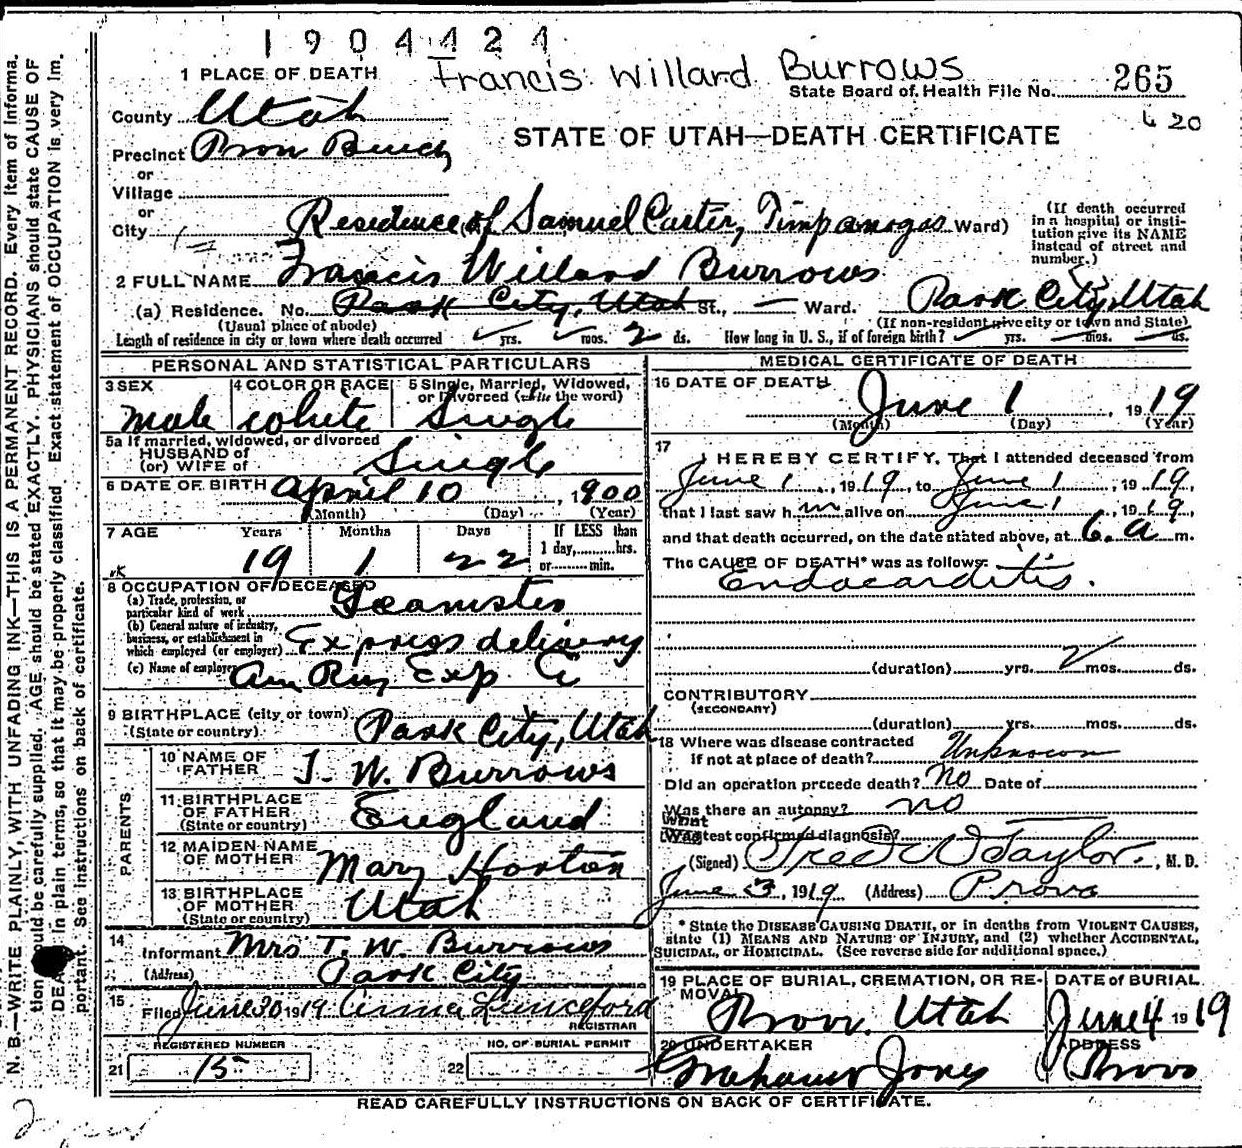 1904424
Francis Willard Burrows
State Board of Health File No. 265
6 20
STATE OF UTAH—DEATH CERTIFICATE
1 PLACE OF DEATH
County Utah
Precinct Provo Bench
or
Village
or
City Residence of Samuel Carter, Timpanogas Ward)
(If death occurred
in a hospital or insti-
tution give its NAME
instead of street and
number.)
2 FULL NAME Francis Willard Burrows
(a) Residence. No. Park City, Utah St., — Ward. Park City, Utah
(Usual place of abode) (If non-resident give city or town and State)
Length of residence in city or town where death occurred yrs. mos. 2 ds. How long in U. S., if of foreign birth? yrs. mos. ds.
PERSONAL AND STATISTICAL PARTICULARS
3 SEX male
4 COLOR OR RACE white
5 Single, Married, Widowed,
or Divorced (write the word) Single
5a If married, widowed, or divorced
HUSBAND OF
(or) WIFE OF Single
6 DATE OF BIRTH April 10, 1900
(Month) (Day) (Year)
7 AGE Years Months Days If LESS than
19 1 22 1 day, hrs.
or min.
8 OCCUPATION OF DECEASED
(a) Trade, profession, or
particular kind of work Teamster
(b) General nature of industry,
business, or establishment in
which employed (or employer) Express delivery
(c) Name of employer Am Ry Exp Co
9 BIRTHPLACE (city or town)
(State or country) Park City, Utah
PARENTS
10 NAME OF
FATHER T. W. Burrows
11 BIRTHPLACE
OF FATHER
(State or country) England
12 MAIDEN NAME
OF MOTHER Mary Horton
13 BIRTHPLACE
OF MOTHER
(State or country) Utah
14
Informant Mrs T. W. Burrows
(Address) Park City
15
Filed June 30 1919 Anna Lunceford
REGISTRAR
REGISTERED NUMBER
21 15
NO. OF BURIAL PERMIT
22
MEDICAL CERTIFICATE OF DEATH
16 DATE OF DEATH
June 1, 1919
(Month) (Day) (Year)
17
I HEREBY CERTIFY, That I attended deceased from
June 1, 1919, to June 1, 1919,
that I last saw him alive on June 1, 1919,
and that death occurred, on the date stated above, at 6. a m.
The CAUSE OF DEATH* was as follows:
Endocarditis.
(duration) yrs. 2 mos. ds.
CONTRIBUTORY
(SECONDARY)
(duration) yrs. mos. ds.
18 Where was disease contracted
if not at place of death? Unknown
Did an operation precede death? no Date of
Was there an autopsy? no
What
test confirmed diagnosis?
(Signed) Fred W Taylor, M. D.
June 3, 1919 (Address) Provo
* State the DISEASE CAUSING DEATH, or in deaths from VIOLENT CAUSES,
state (1) MEANS AND NATURE OF INJURY, and (2) whether ACCIDENTAL,
SUICIDAL, or HOMICIDAL. (See reverse side for additional space.)
19 PLACE OF BURIAL, CREMATION, OR RE-
MOVAL
Provo, Utah
DATE of BURIAL
June 4 1919
20 UNDERTAKER
Jones
ADDRESS
Provo
READ CAREFULLY INSTRUCTIONS ON BACK OF CERTIFICATE.
N. B.—WRITE PLAINLY, WITH UNFADING INK—THIS IS A PERMANENT RECORD. Every item of informa-
tion should be carefully supplied. AGE should be stated EXACTLY. PHYSICIANS should state CAUSE OF
DEATH in plain terms, so that it may be properly classified. Exact statement of OCCUPATION is very im-
portant. See instructions on back of certificate.